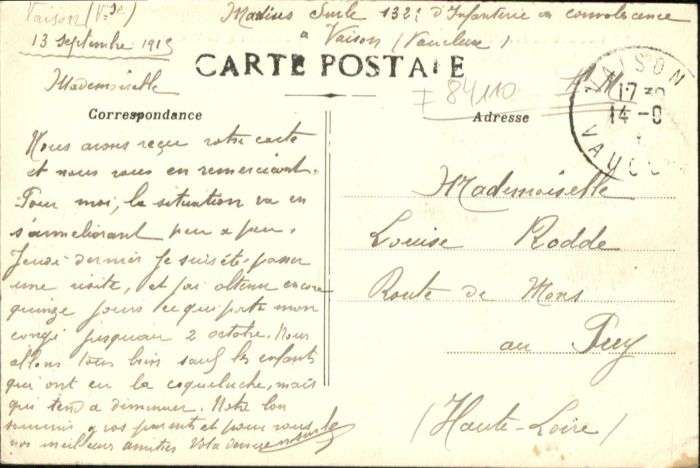 Vaison (Vse)
13 Septembre 1915
Marius Surle 132e d'Infanterie en convalescence
a Vaison (Vaucluse)
CARTE POSTALE
84110
F. M.
Mademoiselle
Correspondance
Nous avons reçu votre carte
et nous vous en remerciant.
Pour moi, la situation va en
s'ameliorant peu a peu.
Jeudi dernier je suis été passer
une visite, et j'ai obtenu encore
quinze jours ce qui porte mon
congé jusquau 2 octobre. Nous
allons tous bien sauf les enfants
qui ont eu la coqueluche, mais
qui tend a diminuer. Notre bon
souvenir a vos parents et pour vous
nos meilleurs amitiés
Adresse
Mademoiselle
Louise Rodde
Route de Mons
au Puy
(Haute-Loire)
VAISON
17 30
14 - 9
VAUCL